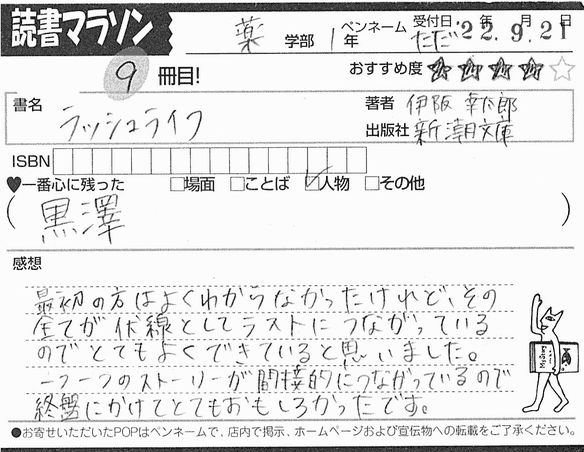 読書マラソン
薬 学部 1年 ペンネーム ただ 受付日 '22年9.月21日
9 冊目! おすすめ度 ★★★★☆
書名 ラッシュライフ
著者 伊阪 幸太郎
出版社 新潮文庫
ISBN
♥一番心に残った □場面 □ことば ☑人物 □その他
(黒澤)
感想
最初の方はよくわからなかったけれど、その
全てが伏線としてラストにつながっている
のでとてもよくできていると思いました。
一つ一つのストーリーが間接的につながっているので
終盤にかけてとてもおもしろかったです。
Mystery
●お寄せいただいたPOPはペンネームで、店内で掲示、ホームページおよび宣伝物への転載をご了承ください。